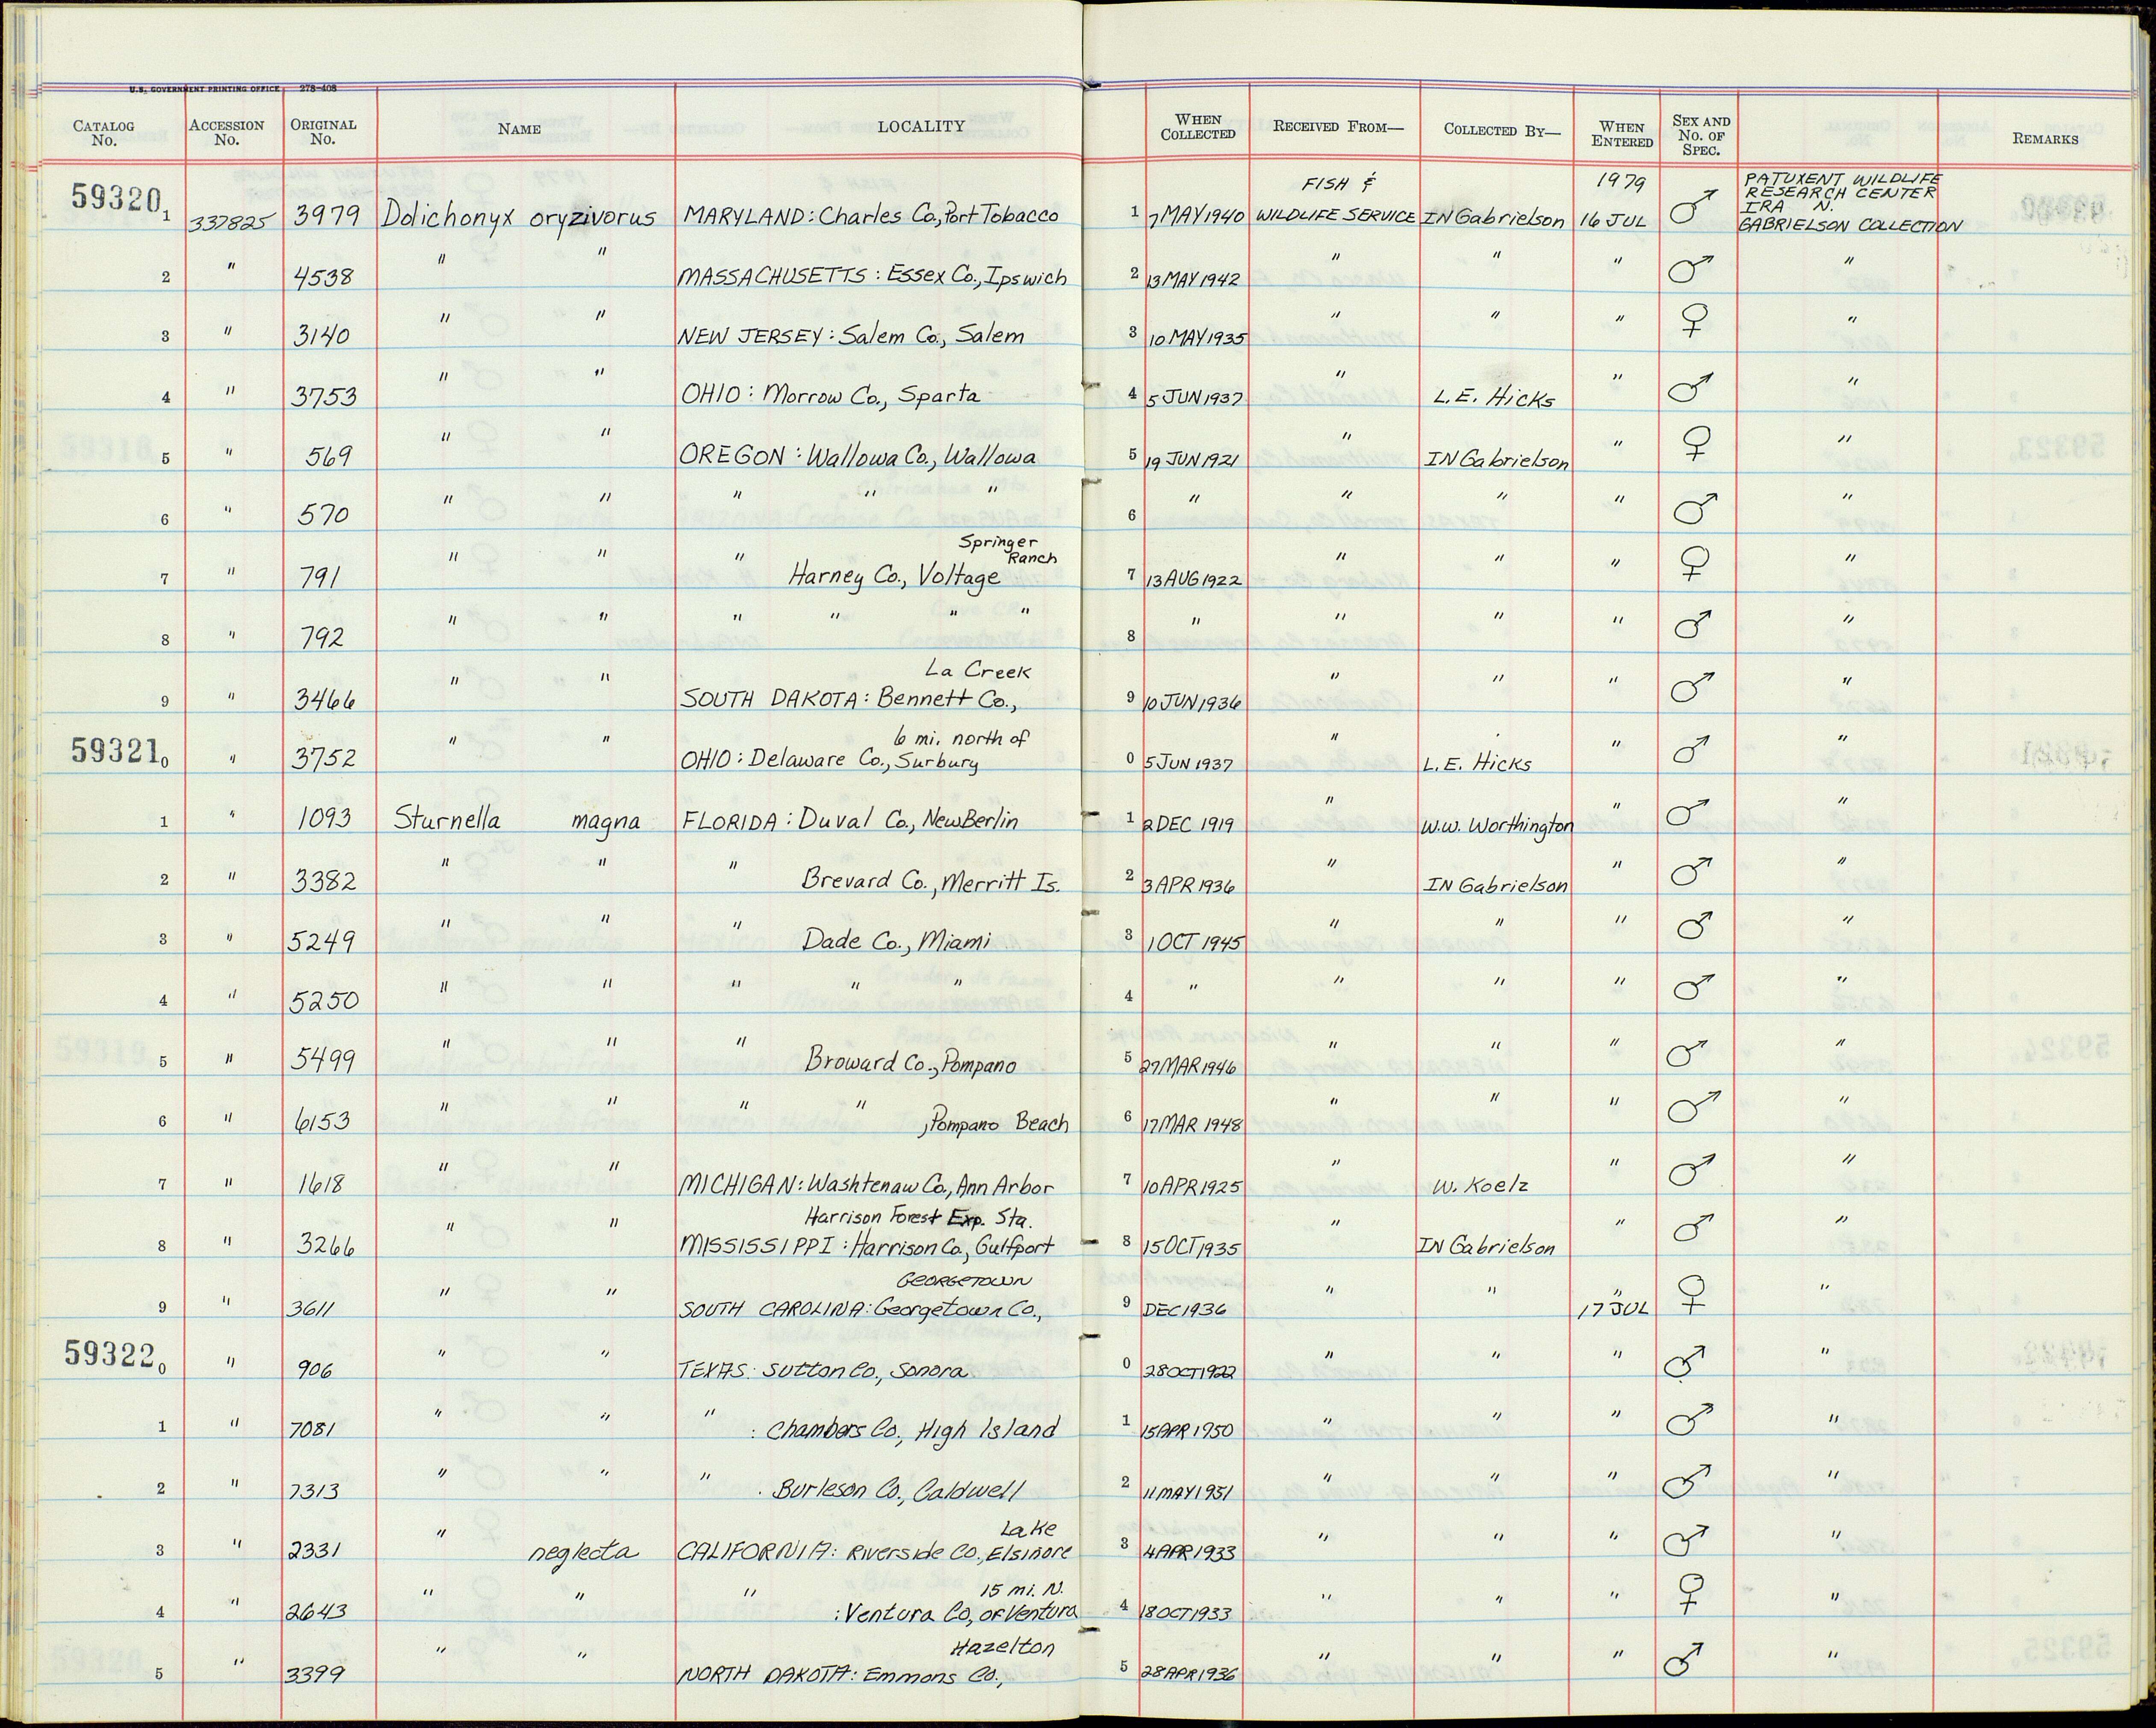 U.S. GOVERNMENT PRINTING OFFICE 278-408
CATALOG No. ACCESSION No. ORIGINAL No. NAME LOCALITY WHEN COLLECTED RECEIVED FROM— COLLECTED BY— WHEN ENTERED SEX AND No. OF SPEC. REMARKS
59320 1 337825 3979 Dolichonyx oryzivorus MARYLAND: Charles Co., Port Tobacco 1 7 MAY 1940 FISH & WILDLIFE SERVICE IN Gabrielson 1979 16 JUL ♂ PATUXENT WILDLIFE RESEARCH CENTER IRA N. GABRIELSON COLLECTION
2 " 4538 " " MASSACHUSETTS: Essex Co., Ipswich 2 13 MAY 1942 " " " ♂ "
3 " 3140 " " NEW JERSEY: Salem Co., Salem 3 10 MAY 1935 " " " ♀ "
4 " 3753 " " OHIO: Morrow Co., Sparta 4 5 JUN 1937 " L.E. Hicks " ♂ "
5 " 569 " " OREGON: Wallowa Co., Wallowa 5 19 JUN 1921 " IN Gabrielson " ♀ "
6 " 570 " " " " " 6 " " " " ♂ "
7 " 791 " " " Harney Co., Voltage Springer Ranch 7 13 AUG 1922 " " " ♀ "
8 " 792 " " " " " " 8 " " " " ♂ "
9 " 3466 " " SOUTH DAKOTA: Bennett Co., La Creek 9 10 JUN 1936 " " " ♂ "
59321 0 " 3752 " " OHIO: Delaware Co., 6 mi. north of Surbury 0 5 JUN 1937 " L.E. Hicks " ♂ "
1 " 1093 Sturnella magna FLORIDA: Duval Co., New Berlin 1 2 DEC 1919 " W.W. Worthington " ♂ "
2 " 3382 " " " Brevard Co., Merritt Is. 2 3 APR 1936 " IN Gabrielson " ♂ "
3 " 5249 " " " Dade Co., Miami 3 1 OCT 1945 " " " ♂ "
4 " 5250 " " " " " 4 " " " " ♂ "
5 " 5499 " " " Broward Co., Pompano 5 27 MAR 1946 " " " ♂ "
6 " 6153 " " " " , Pompano Beach 6 17 MAR 1948 " " " ♂ "
7 " 1618 " " MICHIGAN: Washtenaw Co., Ann Arbor 7 10 APR 1925 " W. Koelz " ♂ "
8 " 3266 " " Harrison Forest Exp. Sta. MISSISSIPPI: Harrison Co., Gulfport 8 15 OCT 1935 " IN Gabrielson " ♂ "
9 " 3611 " " SOUTH CAROLINA: Georgetown Co., GEORGETOWN 9 DEC 1936 " " " 17 JUL ♀ "
59322 0 " 906 " " TEXAS: Sutton Co., Sonora 0 28 OCT 1922 " " " ♂ "
1 " 7081 " " " : Chambers Co., High Island 1 15 APR 1950 " " " ♂ "
2 " 7313 " " " : Burleson Co., Caldwell 2 11 MAY 1951 " " " ♂ "
3 " 2331 " neglecta CALIFORNIA: Riverside Co., Lake Elsinore 3 4 APR 1933 " " " ♂ "
4 " 2643 " " " : Ventura Co, 15 mi. N. of Ventura 4 18 OCT 1933 " " " ♀ "
5 " 3399 " " NORTH DAKOTA: Emmons Co., Hazelton 5 28 APR 1936 " " " ♂ "